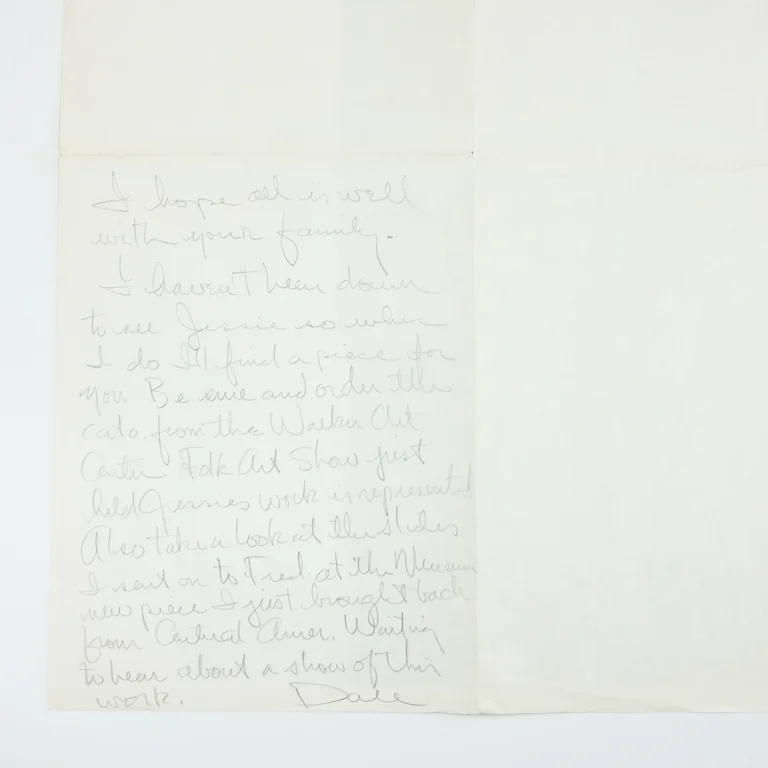 I hope all is well
with your family.
I haven't been down
to see Jessie so when
I do I'll find a piece for
you. Be sure and order the
catlo. from the Walker Art
Center Folk Art Show just
held Jessies work is represented
Also take a look at the slides
I sent on to Fred at the Museum
new piece I just brought back
from Central Amer. Waiting
to hear about a show of this
work. Dale